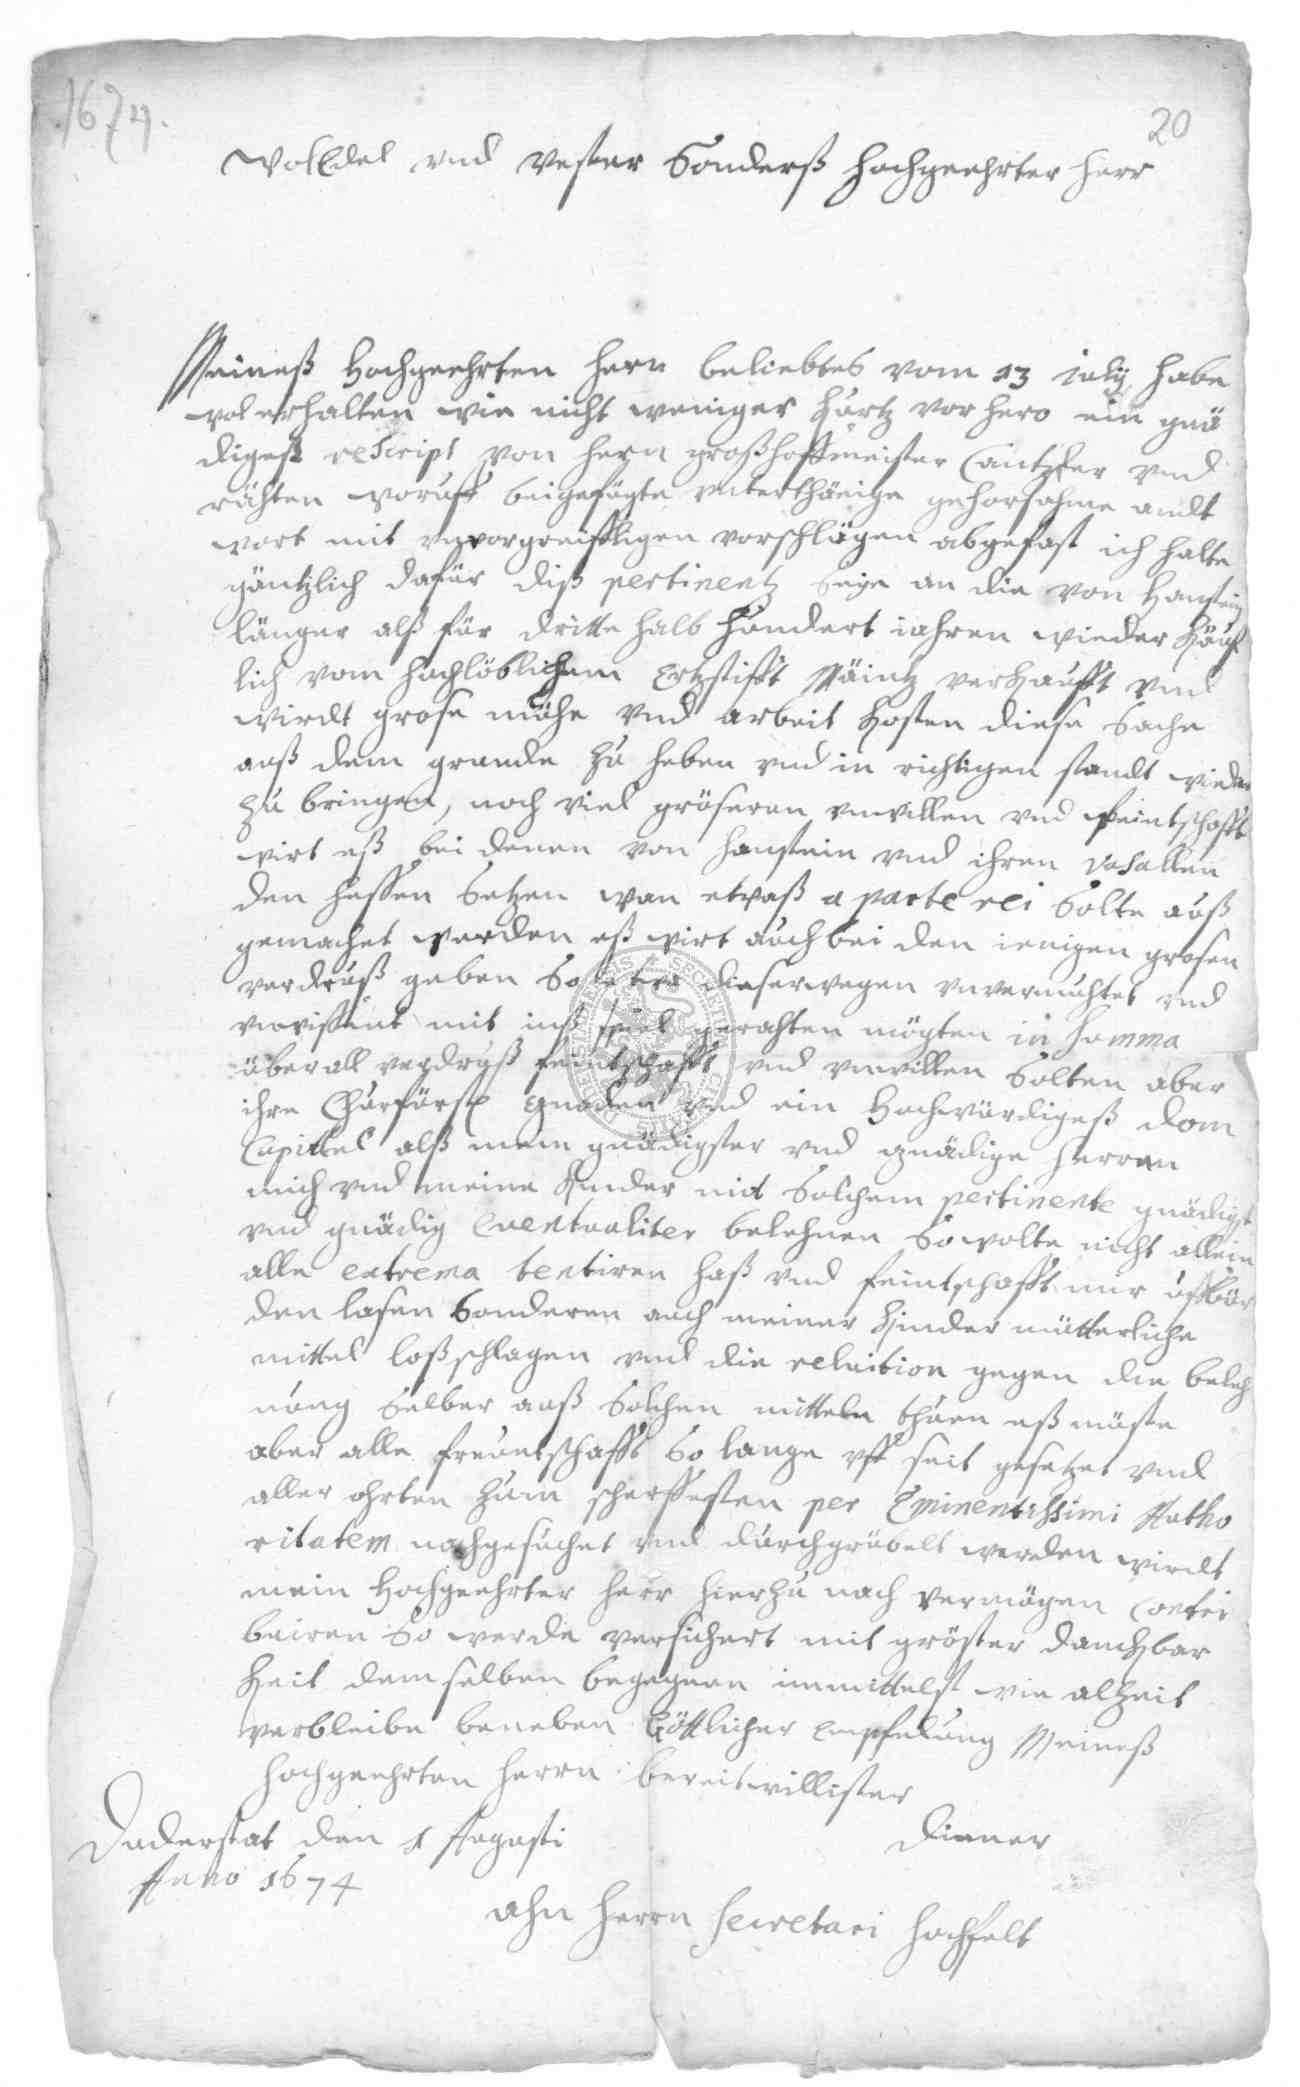 1674.
20
WolEdel vnd Vester Sonderß hochgeehrter herr
Meineß Hochgeehrten herrn beliebtes vom 13 July habe
wol erhalten wie nicht weniger kurtz vorhero ein gnä
digest rescript von hern großhoffmeister Cantzler vnd
rähten worauff beigefügte vnterthänige gehorsahme andt
wort mit vnvorgreifflichen vorschlägen abgefast ich halte
gäntzlich dafür diß pertinentz seye an die von Hanstein
länger alß für dritte halb hundert iahren wieder käuf
lich vom hochlöblichem Ertzstifft Mäintz verkaufft vnd
wirdt grose mühe vnd arbeit kosten diese Sache
auß dem grunde zu heben vnd in richtigen standt wieder
zu bringen, noch viel gröseren vnwillen vnd feintschafft
wirt eß bei denen von hanstein vnd ihren vasallen
den hessen Setzen wan etwaß a parte rei Solte auß
gemachet werden eß wirt auch bei den ienigen grosen
verdruß geben So dieserwegen vnvermuhtet vnd
vnwissent mit inß spiel gerahten mögten in summa
überall verdruß feintschafft vnd vnwillen Solten aber
ihre Churfürstl gnaden vnd ein Hochwürdigeß dom
Capittel alß mein gnädigster vnd gnädige herren
mich vnd meine kinder mit Solchem pertinente gnädigst
vnd gnädig eventualiter belehnen So wolte nicht allein
alle extrema tentiren haß vnd feintschafft mir uffbür
den lasen Sonderen auch meiner kinder mütterliche
mittel loßschlagen vnd die reluition gegen die beleh
nung Selber auß Solchen mitteln thuen eß müste
aber alle freuntschafft So lange vff seit gesetzet vnd
aller ohrten zum scherffesten per Eminentissimi Autho
ritatem nachgesuchet vnd durchgrübelt werden wirdt
mein Hochgeehrter herr hierzu nach vermögen contri
buiren So werde versichert mit gröster danckbar
keit demselben begegnen immittelst wie alzeit
verbleibe beneben Göttlicher empfelung Meineß
hochgeehrten herrn bereitwilligster
Duderstat den 1 Augusti
diener
Anno 1674
ahn herrn Secretari hochfelt